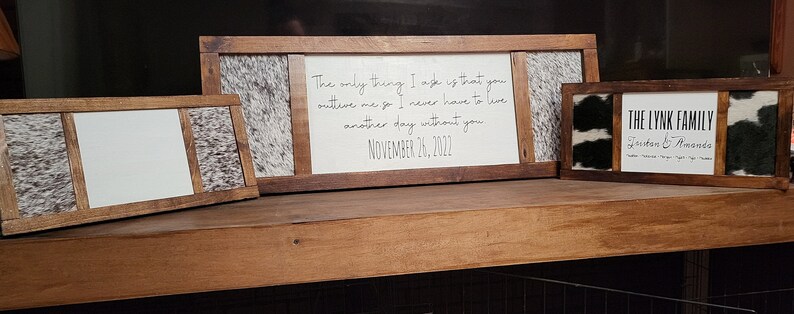 The only thing I ask is that you
outlive me so I never have to live
another day without you
NOVEMBER 26, 2022
THE LYNK FAMILY
Tristan & Amanda